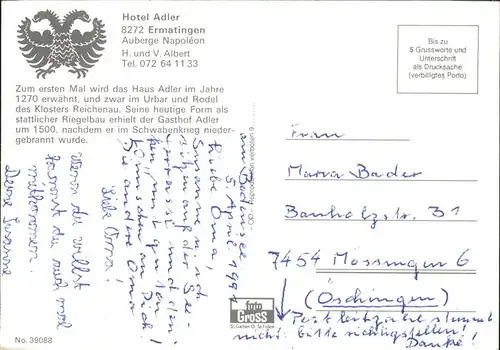 Hotel Adler
8272 Ermatingen
Auberge Napoléon
H. und V. Albert
Tel. 072 64 11 33
Zum ersten Mal wird das Haus Adler im Jahre
1270 erwähnt, und zwar im Urbar und Rodel
des Klosters Reichenau. Seine heutige Form als
stattlicher Riegelbau erhielt der Gasthof Adler
um 1500, nachdem er im Schwabenkrieg nieder-
gebrannt wurde.
Bis zu
5 Grussworte und
Unterschrift
als Drucksache
(verbilligtes Porto)
am Bodensee
5. April 1991
Liebe Oma,
Susanne u. ich
sitzen auf der See-
terrasse und den-
ken, mit guten
Wünschen an Dich!
Die andere Oma
Lilo
Wenn du willst
kannst du auch mal
mitkommen.
Deine Susanne
Reproduktion verboten
Frau
Maria Bader
Banholzstr. 31
7454 Mössingen 6
(Öschingen)
Postleitzahl stimmt
nicht: bitte richtigstellen!
Danke!
foto
GROSS
St. Gallen
No. 39088